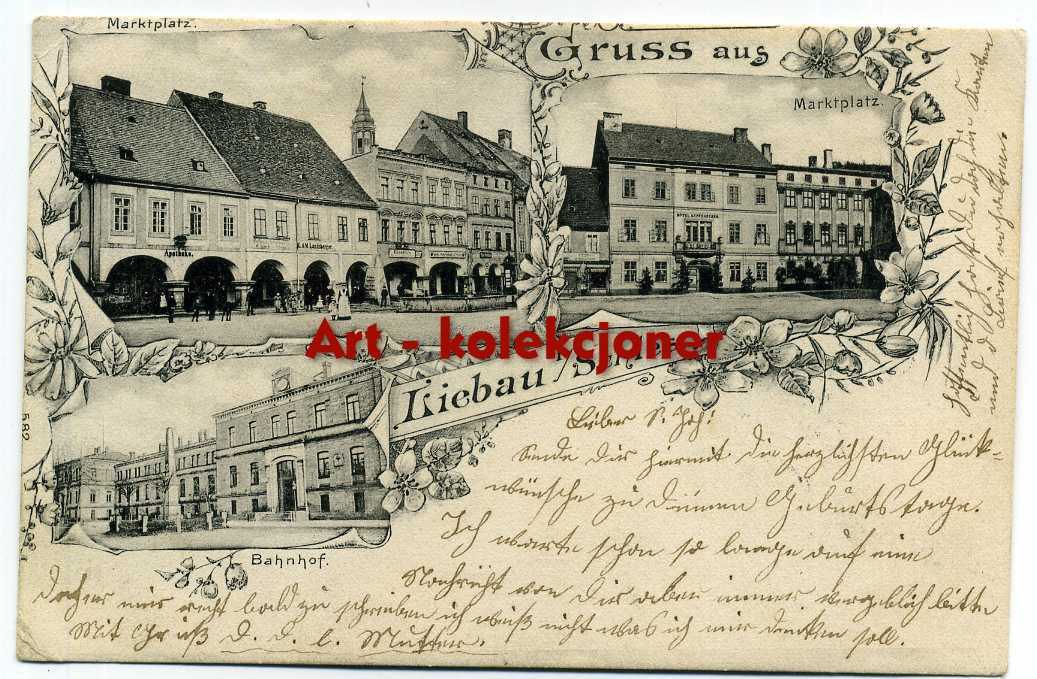 Marktplatz.
Gruss aus
Marktplatz.
Apotheke.
Art - kolekcjoner
Liebau
Bahnhof.
582
Lieber S. Josf!
Sende Dir hiermit die herzlichsten Glück-
wünsche zu Deinem Geburtstage.
Ich warte schon so lange auf eine
Nachricht von Dir aber immer vergeblich bitte
Daher mir recht bald zu schreiben ich weiß nicht was ich mir denken soll.
Mit Gruß D. d. l. Mutter.
Hoffentlich hast Du doch die Karten
und